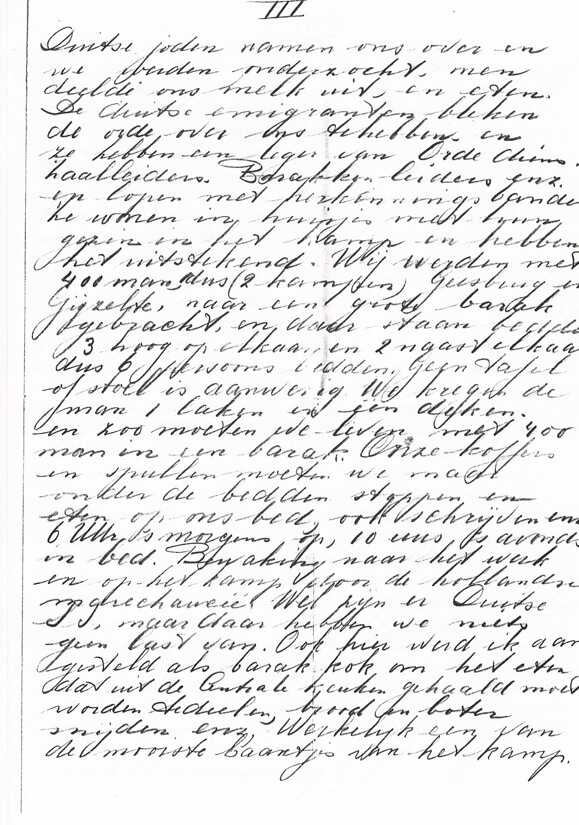 III
Duitse joden namen ons over en
we werden onderzocht, men
deelde ons melk uit, en eten.
De duitse emigranten bleken
de orde over ons te hebben. en
ze hebben een leger van Orde diens.
haalleiders. Barakken leiders enz.
en lopen met herkennings bande
ze wonen in huisjes met hun
gezin in het kamp en hebben
het uitstekend. Wij werden met
400 man, dus (2 kampen) Geesbrug en
Gijzelte, naar een grote barak
gebracht, en daar staan bedde
3 hoog op elkaar, en 2 naast elkaa
dus 6 bedden, geen tafel
of stoel is aanwezig. We kregen de
man 1 laken en één deken.
en zoo moeten we leven met 400
man in een barak. Onze koffers
en spullen moeten we maar
onder de bedden stoppen en
eten op ons bed, ook schrijven enz
6 Uur 's morgens op, 10 uur 's avonds
in bed. Bewaking naar het werk
en op het kamp door de hollandse
Wel zijn er Duitse
SS, maar daar hebben we niets
geen last van. Ook hier werd ik aan
gesteld als barak kok om het eten
dat uit de Centrale keuken gehaald moet
worden te deelen, brood en boter
snijden enz, Werkelijk een van
de mooiste baantjes van het kamp.